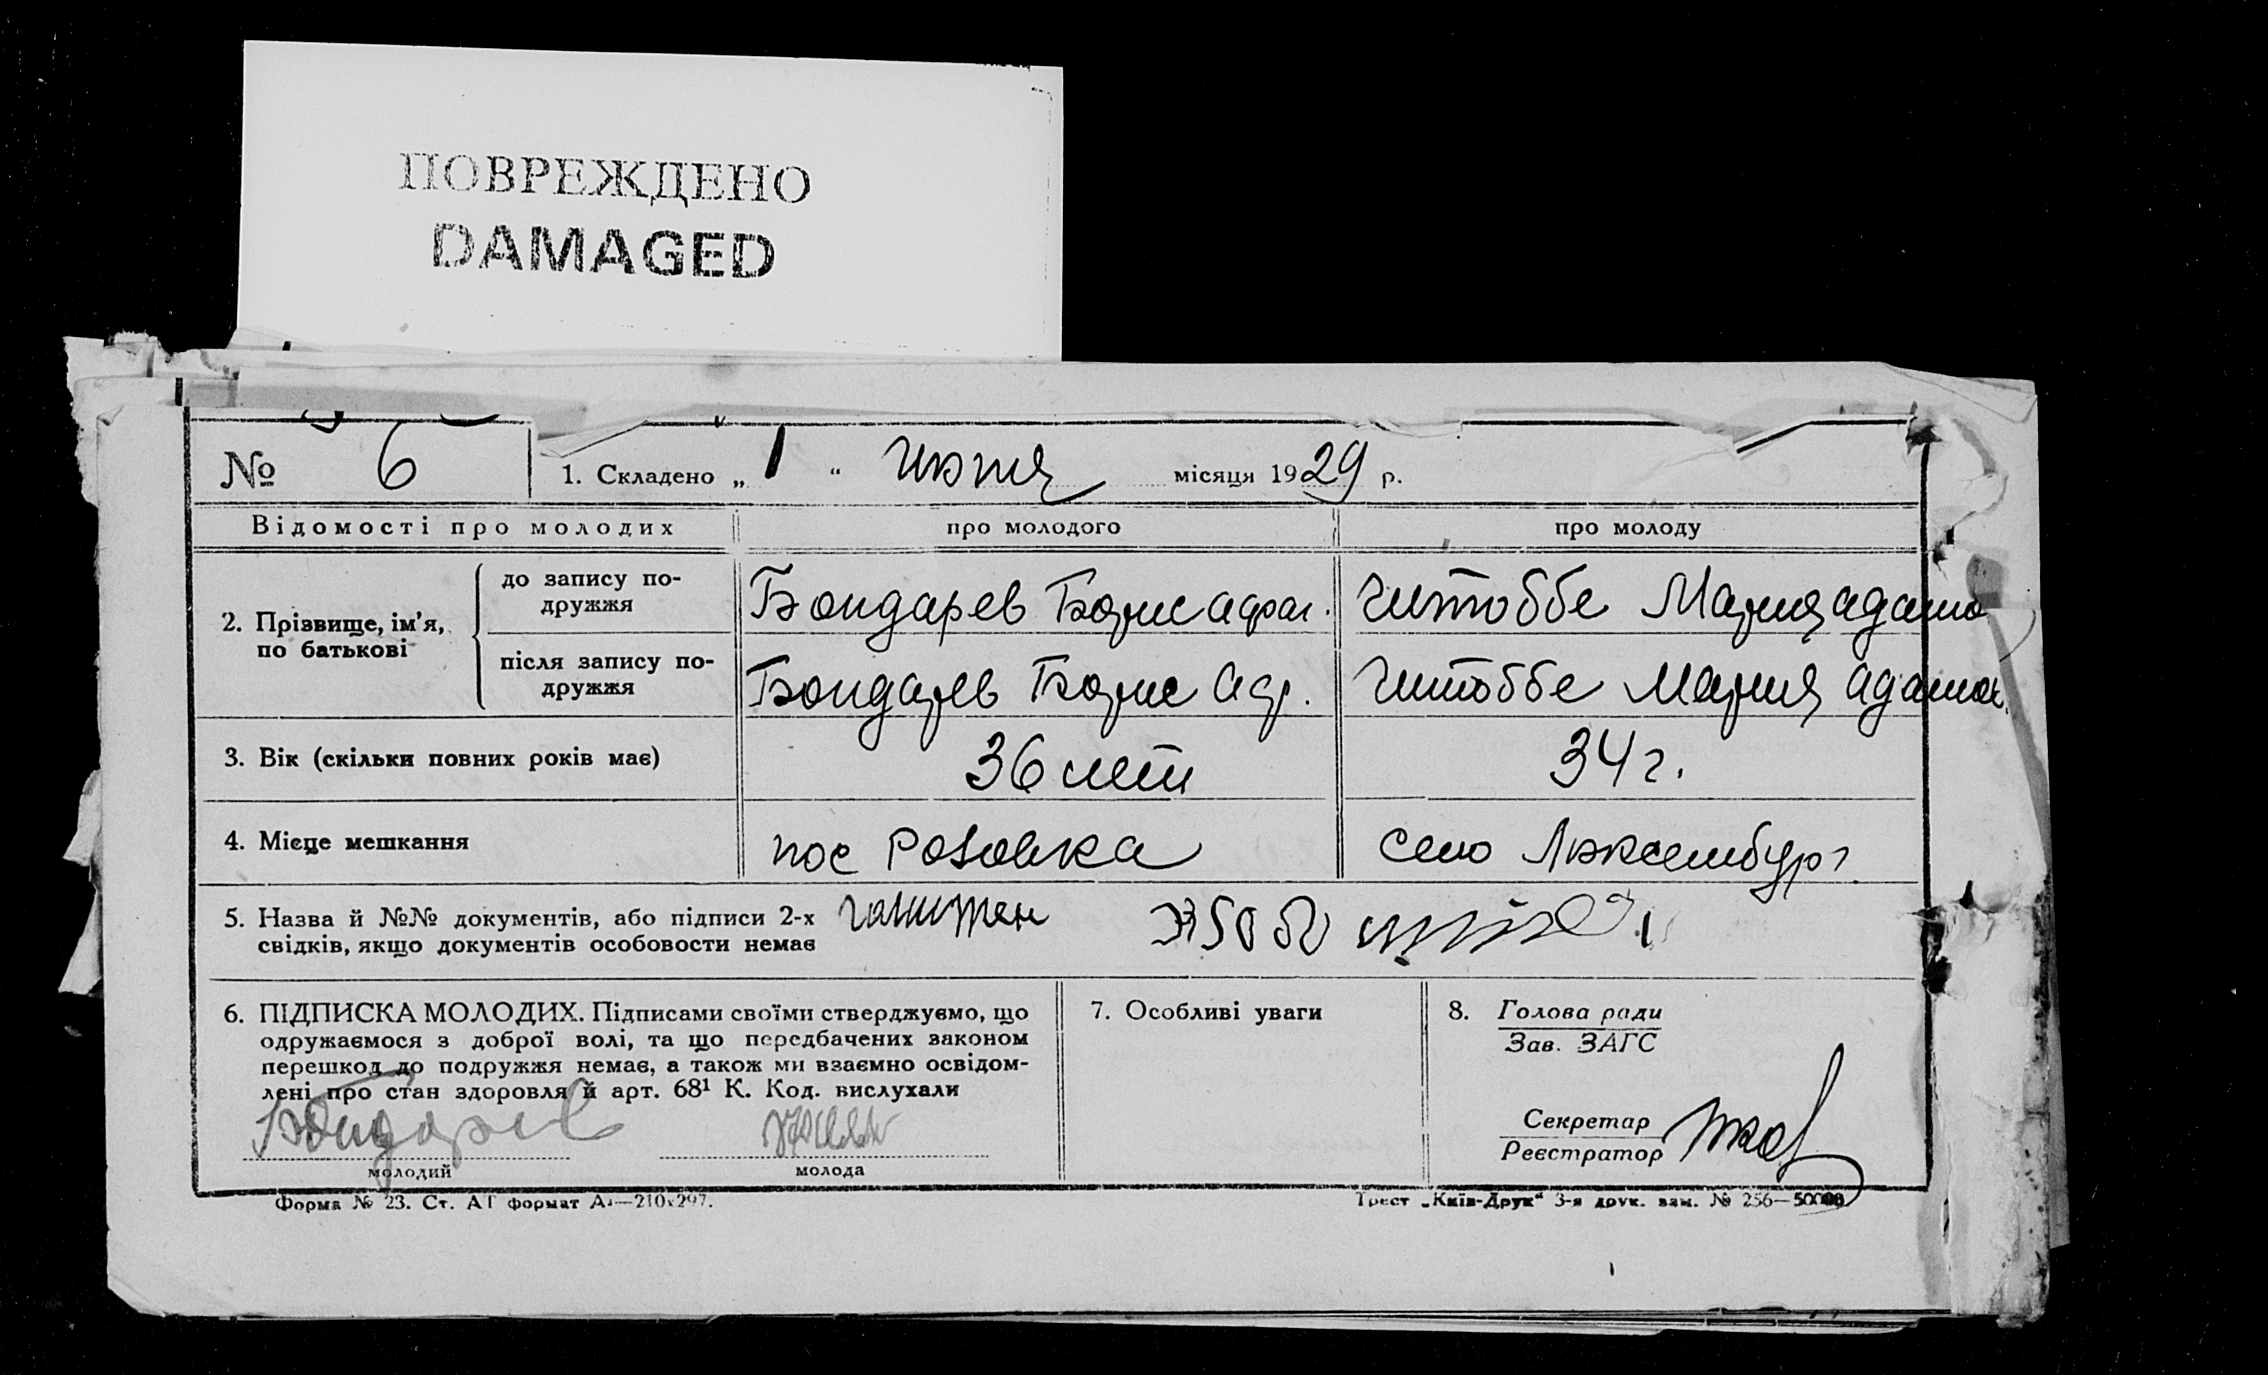 ПОВРЕЖДЕНО
DAMAGED
№ 6
1. Складено „ 1 “ Июня місяця 1929 р.
Відомості про молодих
про молодого
про молоду
2. Прізвище, ім’я, по батькові
до запису подружжя
Бондарев Борис
Мария
після запису подружжя
Бондарев Борис
Мария
3. Вік (скільки повних років має)
36 лет
34 г.
4. Місце мешкання
пос Розовка
село Люксембург
5. Назва й №№ документів, або підписи 2-х
свідків, якщо документів особовости немає
6. ПІДПИСКА МОЛОДИХ. Підписами своїми стверджуємо, що
одружаємося з доброї волі, та що передбачених законом
перешкод до подружжя немає, а також ми взаємно освідом-
лені про стан здоровля й арт. 68¹ К. Код. вислухали
Бондарев
молодий
молода
7. Особливі уваги
8. Голова ради
Зав. ЗАГС
Секретар
Реєстратор
Форма № 23. Ст. АТ формат А₄—210x297.
Трест „Київ-Друк“ 3-я друк. зам. № 256—50000